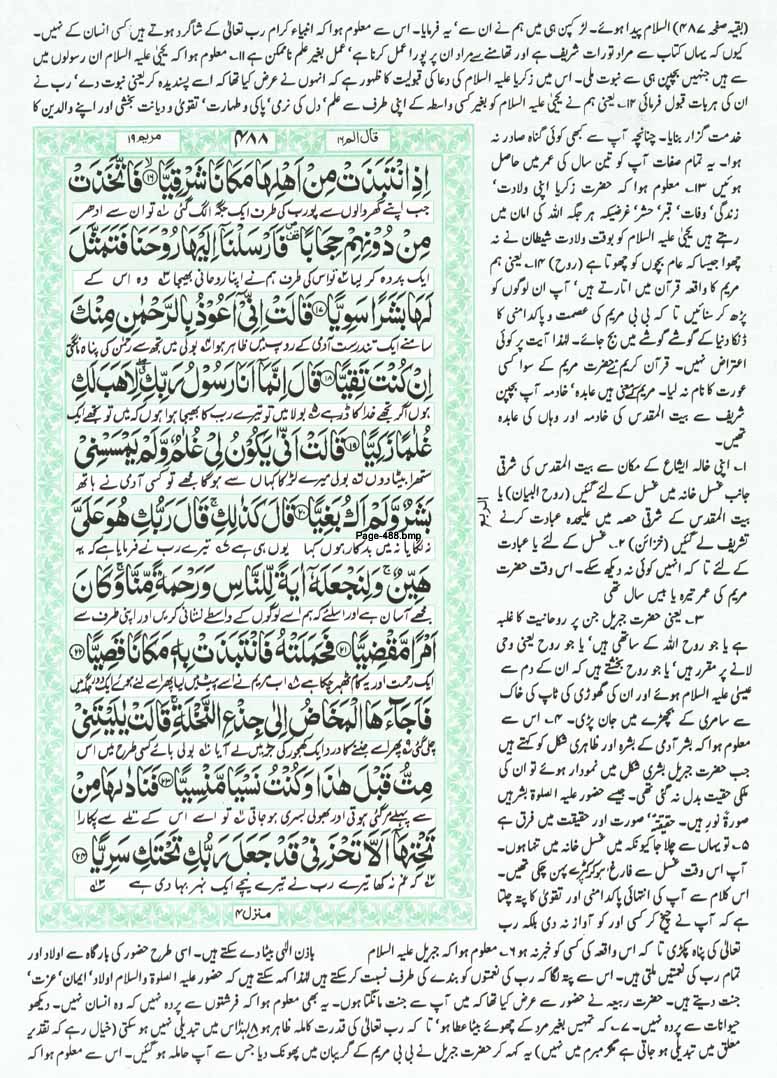 (بقیہ صفحہ ۴۸۷) السلام پیدا ہوئے۔ لڑکپن ہی میں ہم نے ان سے' یہ فرمایا۔ اس سے معلوم ہوا کہ انبیاء کرام رب تعالیٰ کے شاگرد ہوتے ہیں کسی انسان کے نہیں۔
کیوں کہ یہاں کتاب سے مراد تورات شریف ہے اور تھامنے سے مراد ان پر پورا عمل کرنا ہے' عمل بغیر علم ناممکن ہے ۱۱۔ معلوم ہوا کہ یحییٰ علیہ السلام ان رسولوں میں
سے ہیں جنہیں بچپن ہی سے نبوت ملی۔ اس میں زکریا علیہ السلام کی دعا کی قبولیت کا ظہور ہے کہ انہوں نے عرض کیا تھا کہ اسے پسندیدہ کر یعنی نبوت دے' رب نے
ان کی ہر بات قبول فرمائی ۱۲۔ یعنی ہم نے یحییٰ علیہ السلام کو بغیر کسی واسطہ کے اپنی طرف سے علم' دل کی نرمی' پاکی و طہارت' تقویٰ و دیانت بخشی اور اپنے والدین کا
خدمت گزار بنایا۔ چنانچہ آپ سے کبھی کوئی گناہ صادر نہ
ہوا۔ یہ تمام صفات آپ کو تین سال کی عمر میں حاصل
ہوئیں ۱۳۔ معلوم ہوا کہ حضرت زکریا اپنی ولادت'
زندگی' وفات' قبر' حشر' غرضیکہ ہر جگہ اللہ کی امان میں
رہتے ہیں یحییٰ علیہ السلام کو بوقت ولادت شیطان نے نہ
چھوا جیسا کہ عام بچوں کو چھوتا ہے (روح) ۱۴۔ یعنی ہم
مریم کا واقعہ قرآن میں اتارتے ہیں' آپ ان لوگوں کو
پڑھ کر سنائیں تا کہ بی بی مریم کی عصمت و پاکدامنی کا
ڈنکا دنیا کے گوشے گوشے میں بج جائے۔ لہٰذا آیت پر کوئی
اعتراض نہیں۔ قرآن کریم نے حضرت مریم کے سوا کسی
عورت کا نام نہ لیا۔ مریم کے معنی ہیں عابدہ' خادمہ آپ بچپن
شریف سے بیت المقدس کی خادمہ اور وہاں کی عابدہ
تھیں۔
۱۔ اپنی خالہ ایشاع کے مکان سے بیت المقدس کی شرقی
جانب غسل خانہ میں غسل کے لئے گئیں (روح البیان) یا
بیت المقدس کے شرقی حصہ میں علیحدہ عبادت کرنے
تشریف لے گئیں (خزائن) ۲۔ غسل کے لئے یا عبادت
کے لئے تا کہ انہیں کوئی نہ دیکھ سکے۔ اس وقت حضرت
مریم کی عمر تیرہ یا بیس سال تھی
۳۔ یعنی حضرت جبریل جن پر روحانیت کا غلبہ
ہے یا جو روح اللہ کے ساتھی ہیں' یا جو روح یعنی وحی
لانے پر مقرر ہیں' یا جو روح بخشتے ہیں کہ ان کے دم سے
عیسیٰ علیہ السلام ہوئے اور ان کی گھوڑی کی ٹاپ کی خاک
سے سامری کے بچھڑے میں جان پڑی۔ ۴۔ اس سے
معلوم ہوا کہ بشر آدمی کے بشرہ اور ظاہری شکل کو کہتے ہیں
جب حضرت جبریل بشری شکل میں نمودار ہوئے تو ان کی
ملکی حقیقت بدل نہ گئی تھی۔ جیسے حضور علیہ الصلوۃ بشر ہیں
صورۃً نور ہیں۔ حقیقتہً' صورت اور حقیقت میں فرق ہے
۵۔ تو یہاں سے چلا جا کیونکہ میں غسل خانہ میں تنہا ہوں۔
آپ اس وقت غسل سے فارغ ہو کر کپڑے پہن چکی تھیں۔
اس کلام سے آپ کی انتہائی پاکدامنی اور تقویٰ کا پتہ چلتا
ہے کہ آپ نے چیخ کر کسی اور کو آواز نہ دی بلکہ رب
مریم ۱۹
۴۸۸
قال الم ۱۶
اِذِ انْتَبَذَتْ مِنْ اَهْلِهَا مَكَانًا شَرْقِیًّا ۙ۝۱۶ فَاتَّخَذَتْ
جب اپنے گھر والوں سے پورب کی طرف ایک جگہ الگ گئی تو ان سے ادھر
مِنْ دُوْنِهِمْ حِجَابًا ۪۫ فَاَرْسَلْنَاۤ اِلَیْهَا رُوْحَنَا فَتَمَثَّلَ
ایک پردہ کر لیا تو اس کی طرف ہم نے اپنا روحانی بھیجا وہ اس کے
لَهَا بَشَرًا سَوِیًّا ۝۱۷ قَالَتْ اِنِّیْۤ اَعُوْذُ بِالرَّحْمٰنِ مِنْكَ
سامنے ایک تندرست آدمی کے روپ میں ظاہر ہوا بولی میں تجھ سے رحمٰن کی پناہ مانگتی
اِنْ كُنْتَ تَقِیًّا ۝۱۸ قَالَ اِنَّمَاۤ اَنَا رَسُوْلُ رَبِّكِ ۖۗ لِاَهَبَ لَكِ
ہوں اگر تجھے خدا کا ڈر ہے بولا میں تو تیرے رب کا بھیجا ہوا ہوں کہ میں تو تجھے ایک
غُلٰمًا زَكِیًّا ۝۱۹ قَالَتْ اَنّٰی یَكُوْنُ لِیْ غُلٰمٌ وَّ لَمْ یَمْسَسْنِیْ
ستھرا بیٹا دوں بولی میرے لڑکا کہاں سے ہوگا مجھے تو کسی آدمی نے ہاتھ
بَشَرٌ وَّ لَمْ اَكُ بَغِیًّا ۝۲۰ قَالَ كَذٰلِكِ ۚ قَالَ رَبُّكِ هُوَ عَلَیَّ
Page-488.bmp
نہ لگایا نہ میں بدکار ہوں کہا یوں ہی ہے تیرے رب نے فرمایا ہے کہ یہ
هَیِّنٌ ۚ وَ لِنَجْعَلَهٗۤ اٰیَةً لِّلنَّاسِ وَ رَحْمَةً مِّنَّا ۚ وَ كَانَ
مجھے آسان ہے اور اسلئے کہ ہم اسے لوگوں کے واسطے نشانی کریں اور اپنی طرف سے
اَمْرًا مَّقْضِیًّا ۝۲۱ فَحَمَلَتْهُ فَانْتَبَذَتْ بِهٖ مَكَانًا قَصِیًّا ۝۲۲
ایک رحمت اور یہ کام ٹھہر چکا ہے اب مریم نے اسے پیٹ میں لیا پھر اسے لئے ہوئے ایک دور جگہ میں
فَاَجَآءَهَا الْمَخَاضُ اِلٰی جِذْعِ النَّخْلَةِ ۚ قَالَتْ یٰلَیْتَنِیْ
چلی گئی پھر اسے جننے کا درد ایک کھجور کی جڑ میں لے آیا بولی ہائے کسی طرح میں اس
مِتُّ قَبْلَ هٰذَا وَ كُنْتُ نَسْیًا مَّنْسِیًّا ۝۲۳ فَنَادٰىهَا مِنْ
سے پہلے مر گئی ہوتی اور بھولی بسری ہو جاتی تو اے اس کے تلے سے پکارا
تَحْتِهَاۤ اَلَّا تَحْزَنِیْ قَدْ جَعَلَ رَبُّكِ تَحْتَكِ سَرِیًّا ۝۲۴
کہ غم نہ کھا تیرے رب نے تیرے نیچے ایک نہر بہا دی ہے
منزل ۴
تعالیٰ کی پناہ پکڑی تا کہ اس واقعہ کی کسی کو خبر نہ ہو ۶۔ معلوم ہوا کہ جبریل علیہ السلام باذن الٰہی بیٹا دے سکتے ہیں۔ اسی طرح حضور کی بارگاہ سے اولاد اور
تمام رب کی نعمتیں ملتی ہیں۔ اس سے پتہ لگا کہ رب کی نعمتوں کو بندے کی طرف نسبت کر سکتے ہیں لہٰذا کہہ سکتے ہیں کہ حضور علیہ الصلوۃ والسلام اولاد' ایمان' عزت'
جنت دیتے ہیں۔ حضرت ربیعہ نے حضور سے عرض کیا تھا کہ میں آپ سے جنت مانگتا ہوں۔ یہ بھی معلوم ہوا کہ فرشتوں سے پردہ نہیں کہ وہ انسان نہیں۔ دیکھو
حیوانات سے پردہ نہیں۔ ۷۔ کہ تمہیں بغیر مرد کے چھوئے بیٹا عطا ہو' تا کہ رب تعالیٰ کی قدرت کاملہ ظاہر ہو ۸۔ لہٰذا اس میں تبدیلی نہیں ہو سکتی (خیال رہے کہ تقدیر
معلق میں تبدیلی ہو جاتی ہے مگر مبرم میں نہیں) یہ کہہ کر حضرت جبریل نے بی بی مریم کے گریبان میں پھونک دیا جس سے آپ حاملہ ہو گئیں۔ اس سے معلوم ہوا کہ